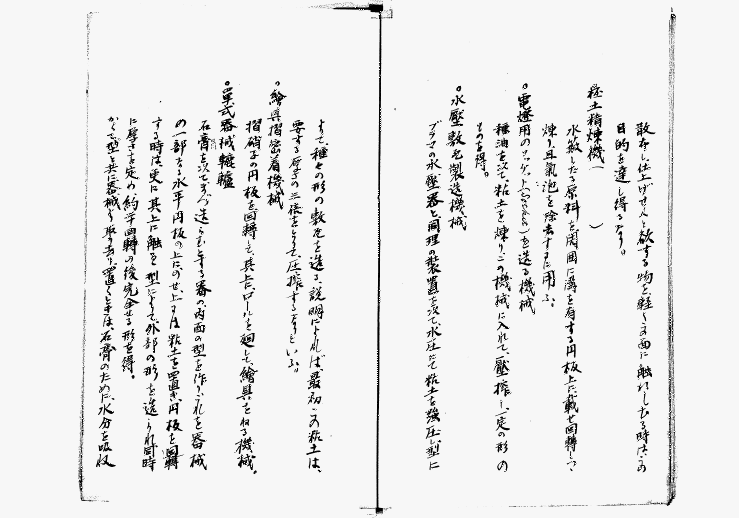 散布し仕上げせんと欲する物を軽く面に触れしむる時は
目的を達し得るなり。
粘土精煉機（　　）
水敏したる原料を周囲に溝を有する円板上に載せ回轉しつゝ
煉り且氣泡を除去するに用ふ。
○電燈用のソケット（　）を造る機械
種油を次て粘土を煉りこの機械に入れて、壓搾し一定の形の
ものを得。
○水壓敷瓦製造機械
ブラマの水壓器と同理の装置を次て水圧にて粘土を強圧し型に
よて、種々の形の敷瓦を造る説明によれば最初この粘土は、
要する厚さの三倍をとりて圧搾するなりといふ。
○繪具摺密着機械
摺硝子の円板を回轉して其上にロールを廻して、繪具をねる機械。
○單式器械轆轤
石膏を次てまづ造らむとする器の内面の型を作りこれを器械
の一部なる水平円板の上にのせ、上方は粘土を置き、円板を回轉
する時は、更に其上に触るゝ型によて外部の形を造られ同時
に厚さを定め約半回轉の後完全せる形を得。
かくて型と共に器械より取り去り置くときは、石膏のために水分を吸収